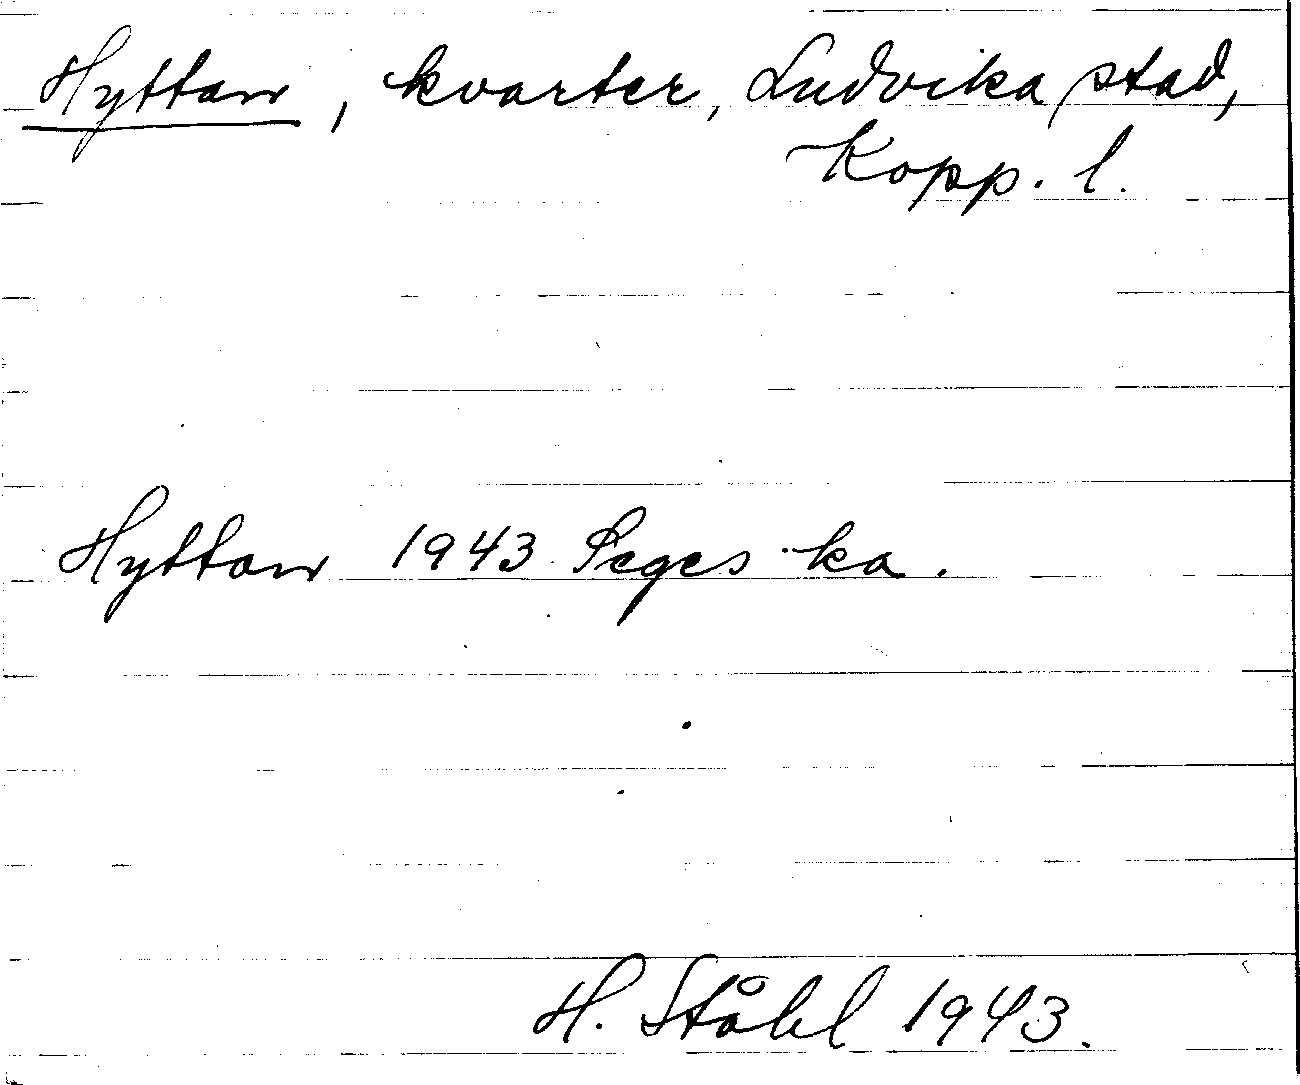 Hyttan, kvarter, Ludvika stad,
Kopp. l.
Hyttan 1943 Seges ka.
H. Ståhl 1943.